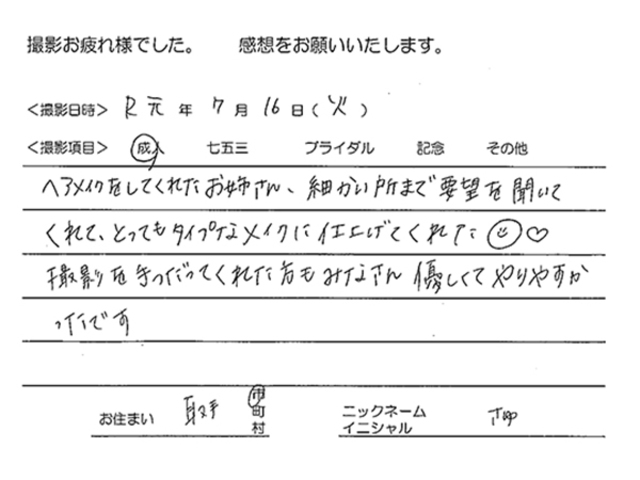 撮影お疲れ様でした。 感想をお願いいたします。
<撮影日時> R元年 7月 16日(火)
<撮影項目> 成人 七五三 ブライダル 記念 その他
ヘアメイクをしてくれたお姉さん、細かい所まで要望を聞いて
くれて、とってもタイプなメイクに仕上げてくれた☺♡
撮影を手つだってくれた方もみなさん優しくてやりやすか
ったです
お住まい 取手 市 町 村 ニックネーム イニシャル さゆ